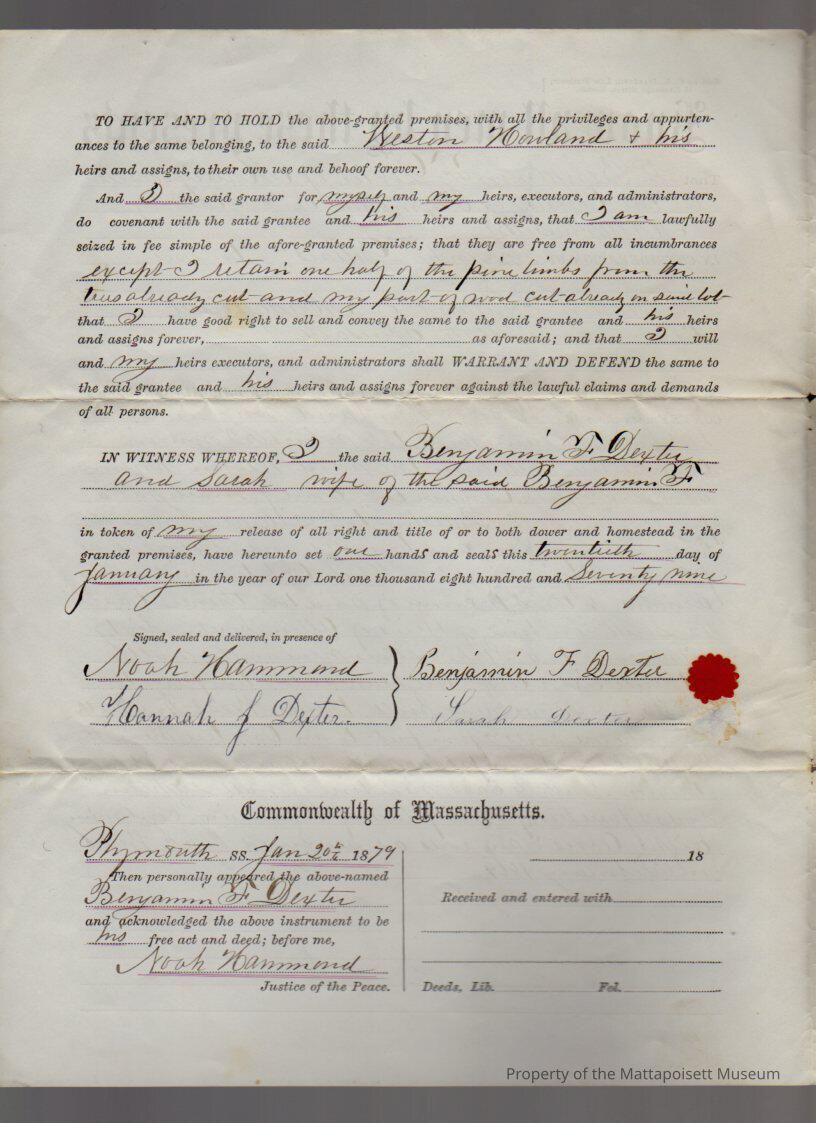 TO HAVE AND TO HOLD the above-granted premises, with all the privileges and appurten-
ances to the same belonging, to the said Weston Howland & his
heirs and assigns, to their own use and behoof forever.
And I the said grantor for myself and my heirs, executors, and administrators,
do covenant with the said grantee and his heirs and assigns, that I am lawfully
seized in fee simple of the afore-granted premises; that they are free from all incumbrances
except I retain one half of the pine limbs from the
trees already cut and my part of wood cut already on said lot
that I have good right to sell and convey the same to the said grantee and his heirs
and assigns forever, as aforesaid; and that I will
and my heirs executors, and administrators shall WARRANT AND DEFEND the same to
the said grantee and his heirs and assigns forever against the lawful claims and demands
of all persons.
IN WITNESS WHEREOF, I the said Benjamin F Dexter
and Sarah wife of the said Benjamin F
in token of my release of all right and title of or to both dower and homestead in the
granted premises, have hereunto set our hands and seals this twentieth day of
January in the year of our Lord one thousand eight hundred and Seventy nine
Signed, sealed and delivered, in presence of
Noah Hammond } Benjamin F Dexter
Hannah J Dexter. Sarah Dexter
Commonwealth of Massachusetts.
Plymouth SS. Jan 20th 1879
Then personally appeared the above-named
Benjamin F Dexter
and acknowledged the above instrument to be
his free act and deed; before me,
Noah Hammond
Justice of the Peace.
18
Received and entered with
Deeds, Lib. Fol.
Property of the Mattapoisett Museum